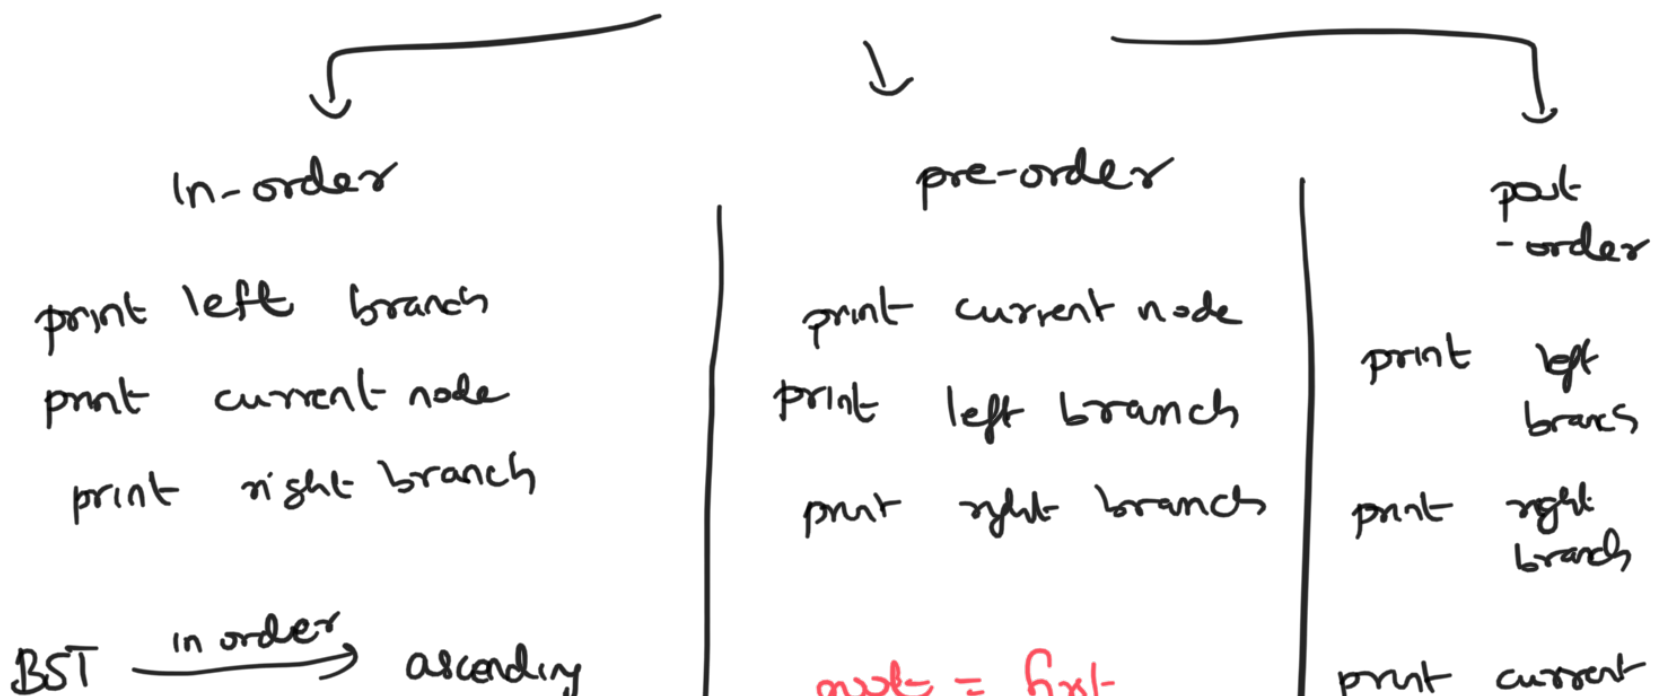 In-order
print left branch
print current node
print right branch
BST in order ascending
pre-order
print current node
print left branch
print right branch
root = first
post
-order
print left
branch
print right
branch
print current